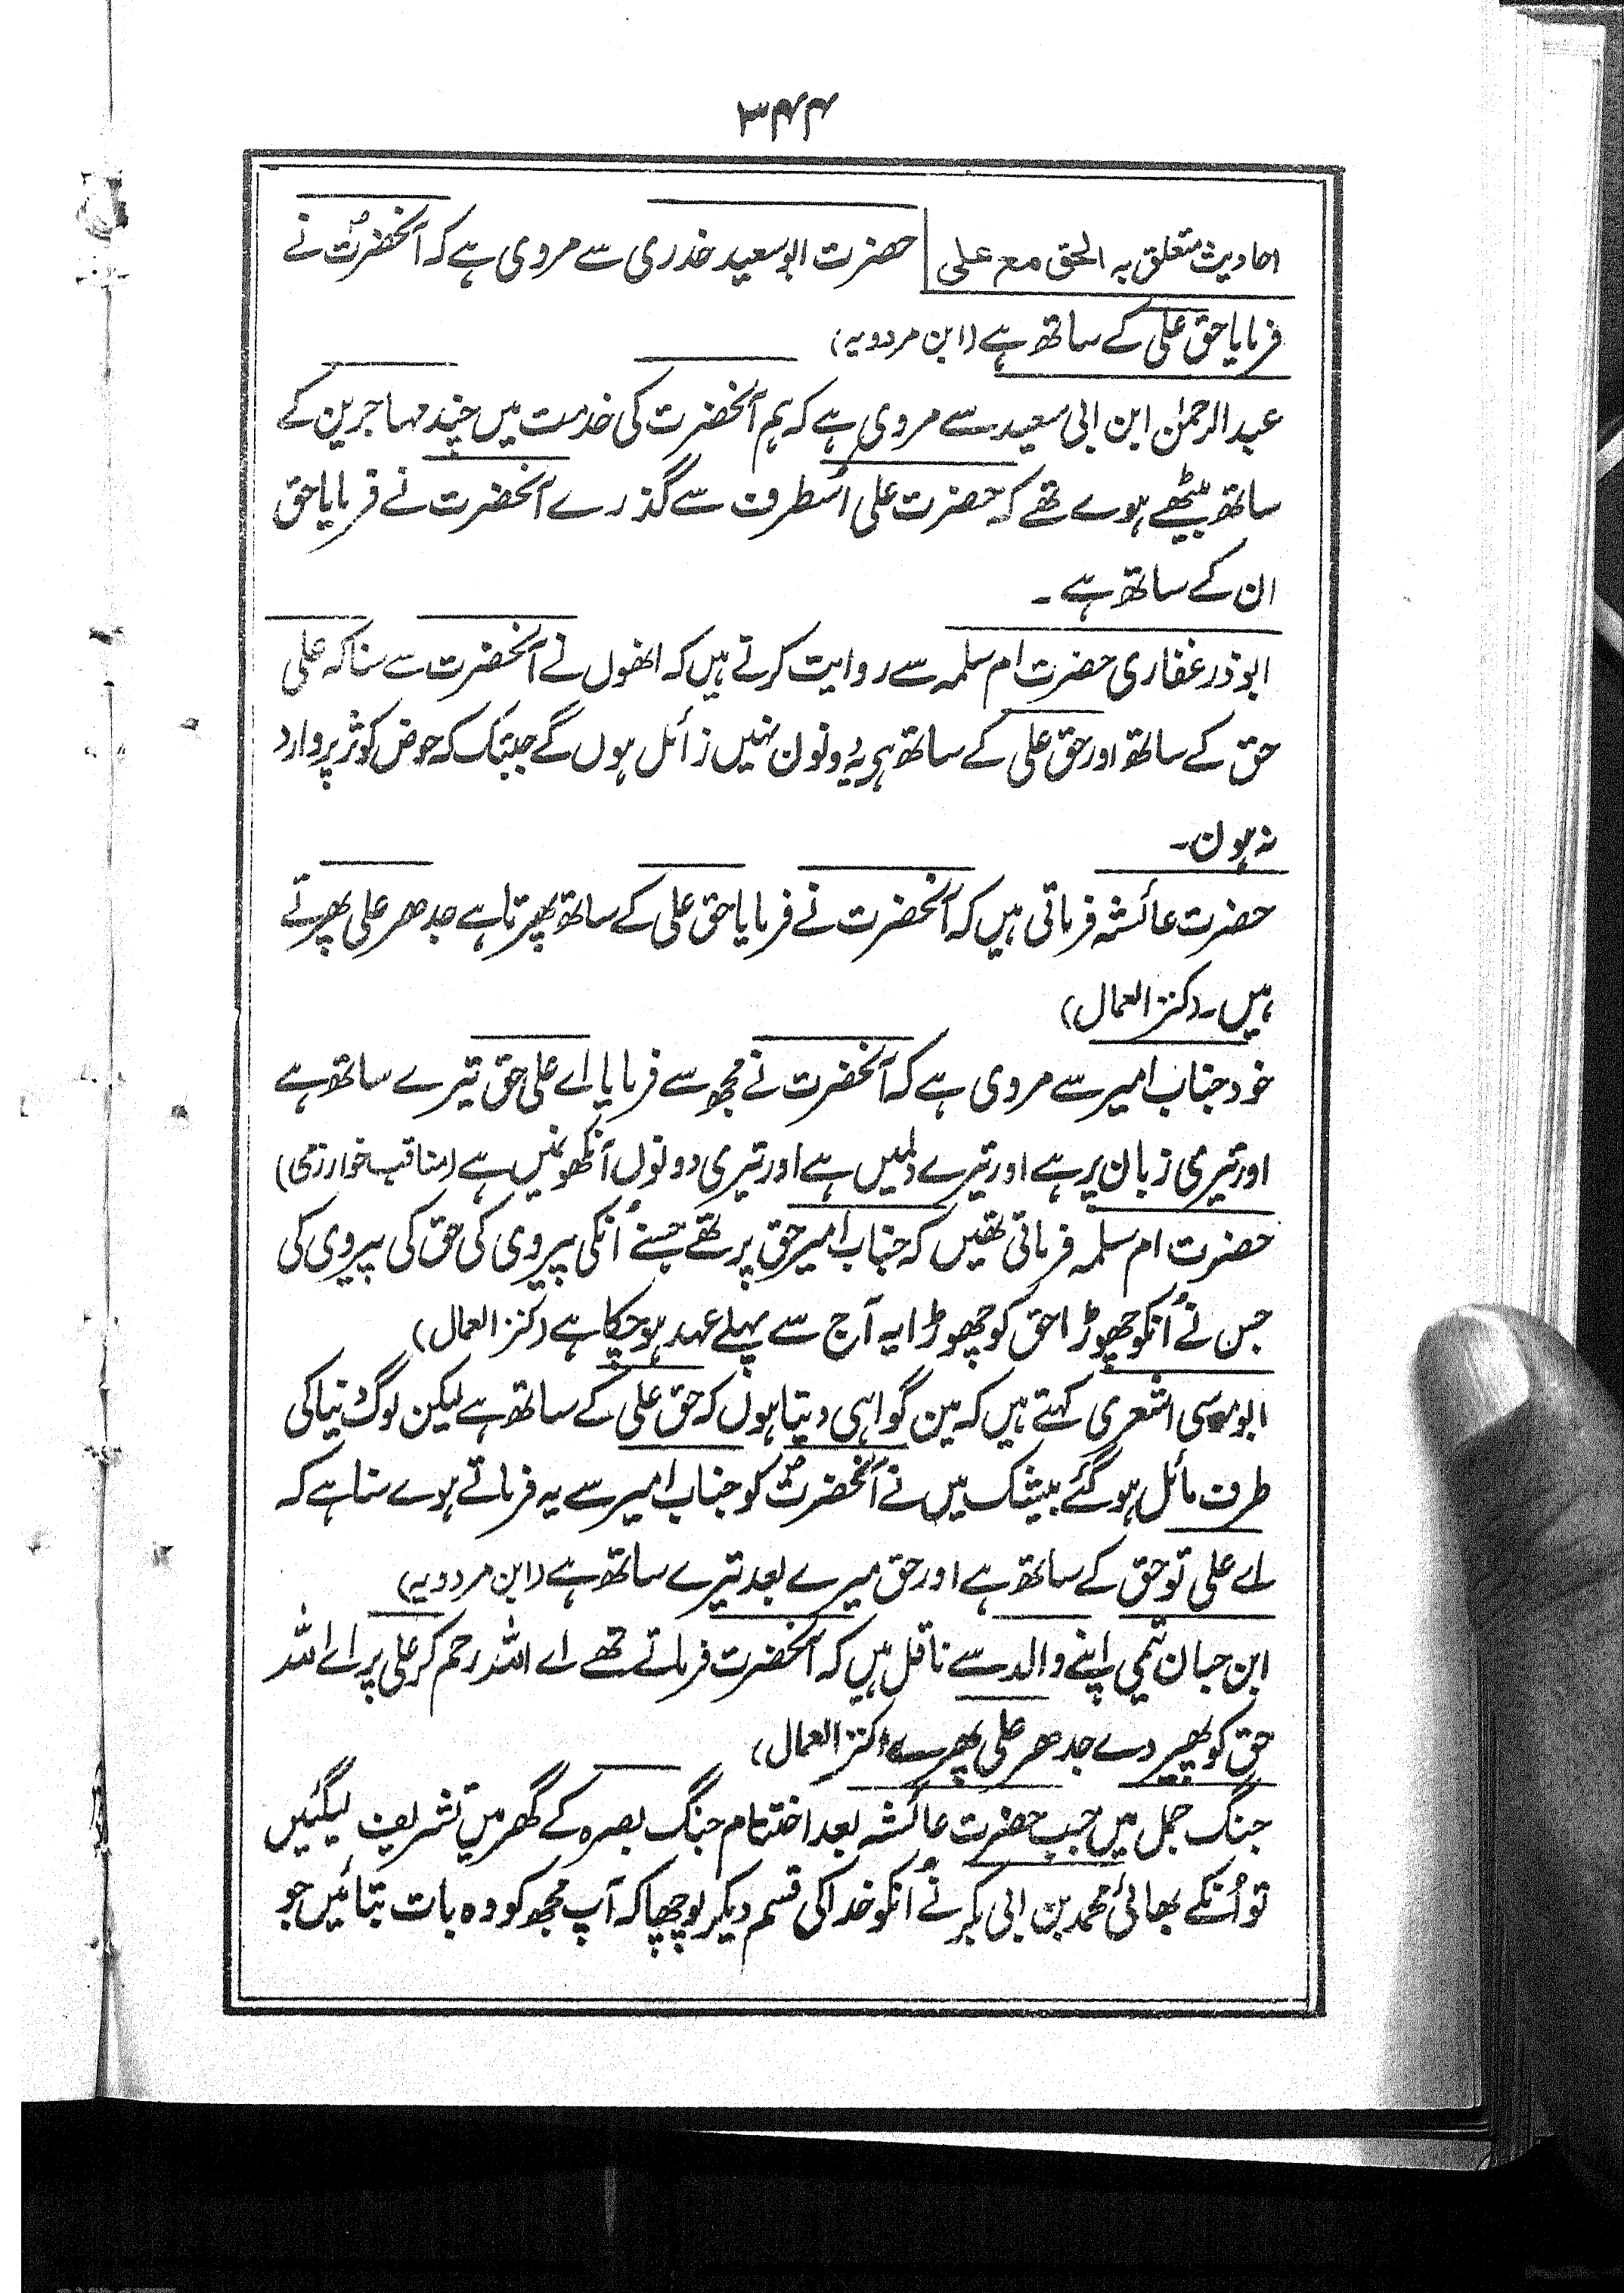 ۳۴۴
احادیث متعلق بہ الحق مع علی حضرت ابوسعید خدری سے مروی ہے کہ آنحضرتؐ نے
فرمایا حق علی کے ساتھ ہے (ابن مردویہ)
عبدالرحمٰن ابن ابی سعید سے مروی ہے کہ ہم آنحضرت کی خدمت میں چند مہاجرین کے
ساتھ بیٹھے ہوے تھے کہ حضرت علی اُسطرف سے گذرے آنحضرت نے فرمایا حق
ان کے ساتھ ہے ۔
ابوذر غفاری حضرت ام سلمہ سے روایت کرتے ہیں کہ انھوں نے آنحضرت سے سنا کہ علی
حق کے ساتھ اور حق علی کے ساتھ ہی یہ دونون نہیں زائل ہوں گے جبتک کہ حوض کوثر پر وارد
نہ ہون ۔
حضرت عائشہ فرماتی ہیں کہ آنحضرت نے فرمایا حق علی کے ساتھ پھرتا ہے جدھر علی پھرتے
ہیں ۔ (کنز العمال)
خود جناب امیر سے مروی ہے کہ آنحضرت نے مجھ سے فرمایا اے علی حق تیرے ساتھ ہے
اور تیری زبان پر ہے اور تیرے دلمیں ہے اور تیری دونوں آنکھونمیں ہے (مناقب خوارزمی)
حضرت ام سلمہ فرماتی تھیں کہ جناب امیر حق پر تھے جسنے اُنکی پیروی کی حق کی پیروی کی
جس نے اُنکو چھوڑا حق کو چھوڑا یہ آج سے پہلے عہد ہو چکا ہے (کنز العمال)
ابو موسی اشعری کہتے ہیں کہ مین گواہی دیتا ہوں کہ حق علی کے ساتھ ہے لیکن لوگ دنیا کی
طرف مائل ہو گئے بیشک میں نے آنحضرتؐ کو جناب امیر سے یہ فرماتے ہوے سنا ہے کہ
اے علی تو حق کے ساتھ ہے اور حق میرے بعد تیرے ساتھ ہے (ابن مردویہ)
ابن حبان تیمی اپنے والد سے ناقل ہیں کہ آنحضرت فرماتے تھے اے اللہ رحم کر علی پر اے اللہ
حق کو پھیر دے جدھر علی پھرے (کنز العمال)
جنگ جمل میں جب حضرت عائشہ بعد اختتام جنگ بصرہ کے گھر میں تشریف لیگئیں
تو اُنکے بھائی محمد بن ابی بکر نے اُنکو خدا کی قسم دیکر پوچھا کہ آپ مجھ کو وہ بات بتائیں جو